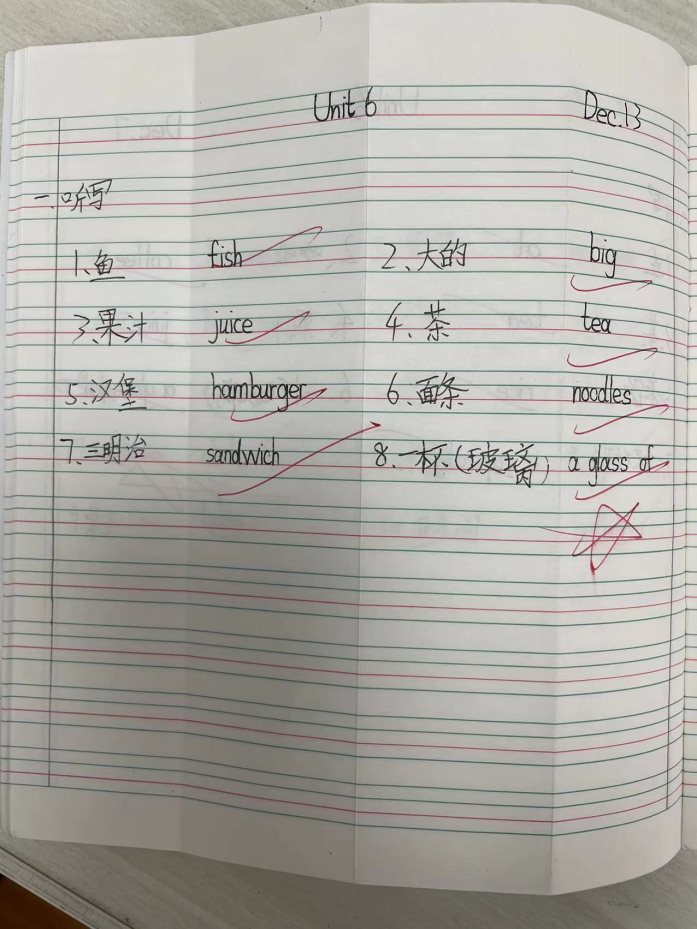 Unit 6 Dec.13
一、听写
1、鱼 fish 2、大的 big
3、果汁 juice 4、茶 tea
5、汉堡 hamburger 6、面条 noodles
7、三明治 sandwich 8、一杯(玻璃) a glass of